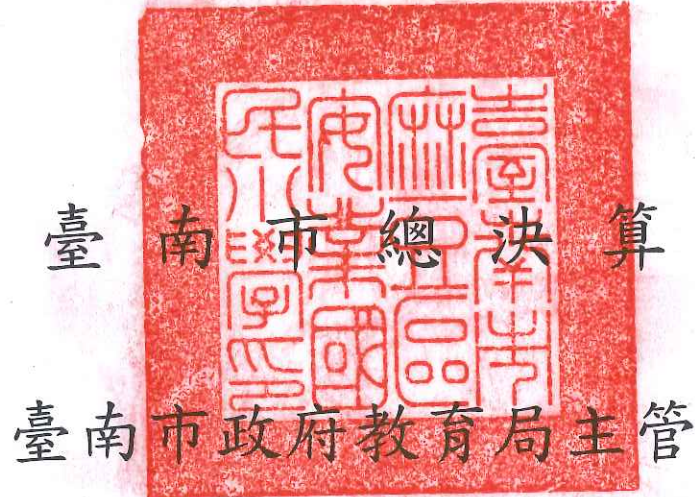 臺南市總決算
臺南市政府教育局主管
臺南市
麻豆區
安業國
民小學印